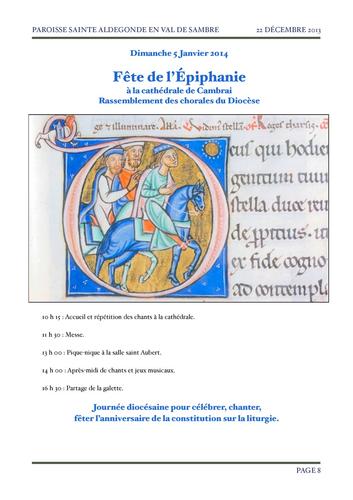 PAROISSE SAINTE ALDEGONDE EN VAL DE SAMBRE 22 DÉCEMBRE 2013
Dimanche 5 Janvier 2014
Fête de l'Épiphanie
à la cathédrale de Cambrai
Rassemblement des chorales du Diocèse
ge et illuminare.
eus qui hodier
gentium tuum
stella duce reu
ex fide cogno
ad contempl
10 h 15 : Accueil et répétition des chants à la cathédrale.
11 h 30 : Messe.
13 h 00 : Pique-nique à la salle saint Aubert.
14 h 00 : Après-midi de chants et jeux musicaux.
16 h 30 : Partage de la galette.
Journée diocésaine pour célébrer, chanter,
fêter l'anniversaire de la constitution sur la liturgie.
PAGE 8